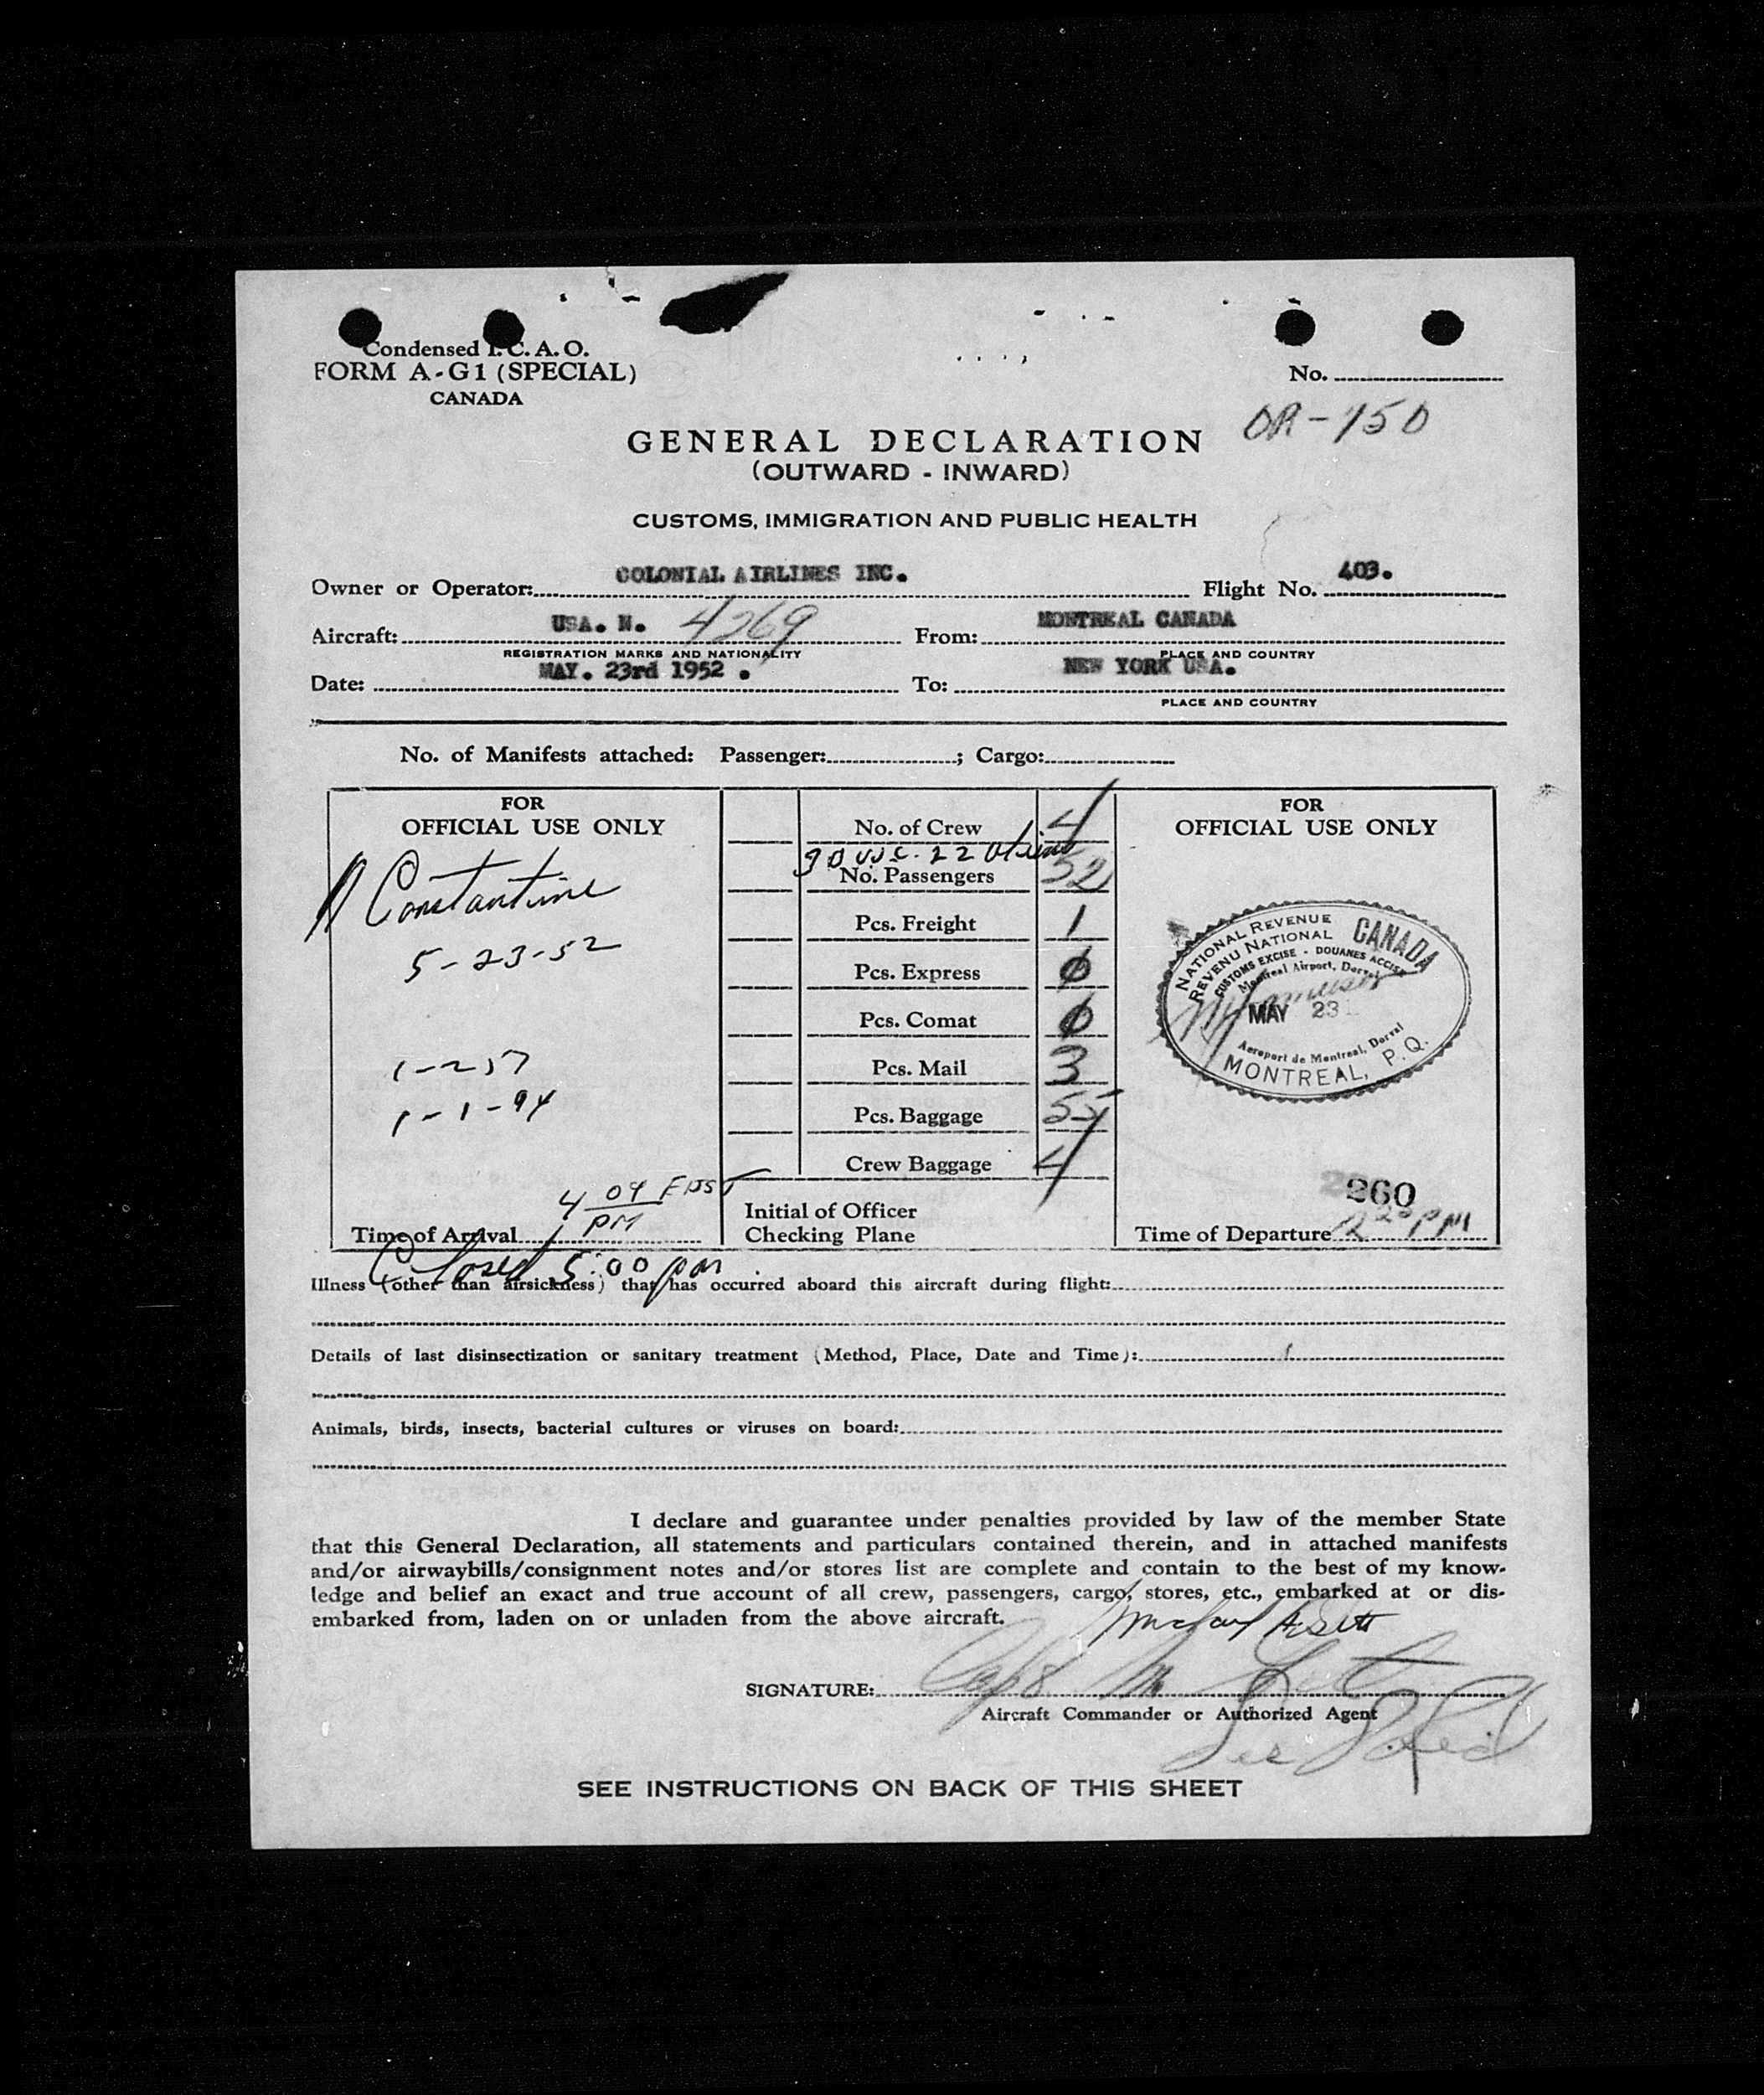 Condensed I.C.A.O.
FORM A-G1 (SPECIAL)
CANADA
No.
OR-150
GENERAL DECLARATION
(OUTWARD - INWARD)
CUSTOMS, IMMIGRATION AND PUBLIC HEALTH
Owner or Operator: COLONIAL AIRLINES INC. Flight No. 403.
Aircraft: USA. N. 4269 From: MONTREAL CANADA
REGISTRATION MARKS AND NATIONALITY PLACE AND COUNTRY
Date: MAY. 23rd 1952 . To: NEW YORK USA.
PLACE AND COUNTRY
No. of Manifests attached: Passenger: ; Cargo:
FOR
OFFICIAL USE ONLY
Constantine
5-23-52
1-257
1-1-94
4 04 EDST
PM
Time of Arrival
Closed 5:00 pm
No. of Crew 4
30 USC. 22 Aliens
No. Passengers 52
Pcs. Freight 1
Pcs. Express 0
Pcs. Comat 0
Pcs. Mail 3
Pcs. Baggage 55
Crew Baggage 4
Initial of Officer
Checking Plane
FOR
OFFICIAL USE ONLY
NATIONAL REVENUE CANADA
REVENU NATIONAL
CUSTOMS EXCISE - DOUANES ACCISE
Montreal Airport, Dorval
MAY 23
Aeroport de Montreal, Dorval
MONTREAL, P.Q.
260
Time of Departure 2 20 PM
Illness (other than airsickness) that has occurred aboard this aircraft during flight:
Details of last disinsectization or sanitary treatment (Method, Place, Date and Time):
Animals, birds, insects, bacterial cultures or viruses on board:
I declare and guarantee under penalties provided by law of the member State
that this General Declaration, all statements and particulars contained therein, and in attached manifests
and/or airwaybills/consignment notes and/or stores list are complete and contain to the best of my know-
ledge and belief an exact and true account of all crew, passengers, cargo, stores, etc., embarked at or dis-
embarked from, laden on or unladen from the above aircraft.
SIGNATURE: Capt M
Aircraft Commander or Authorized Agent
SEE INSTRUCTIONS ON BACK OF THIS SHEET